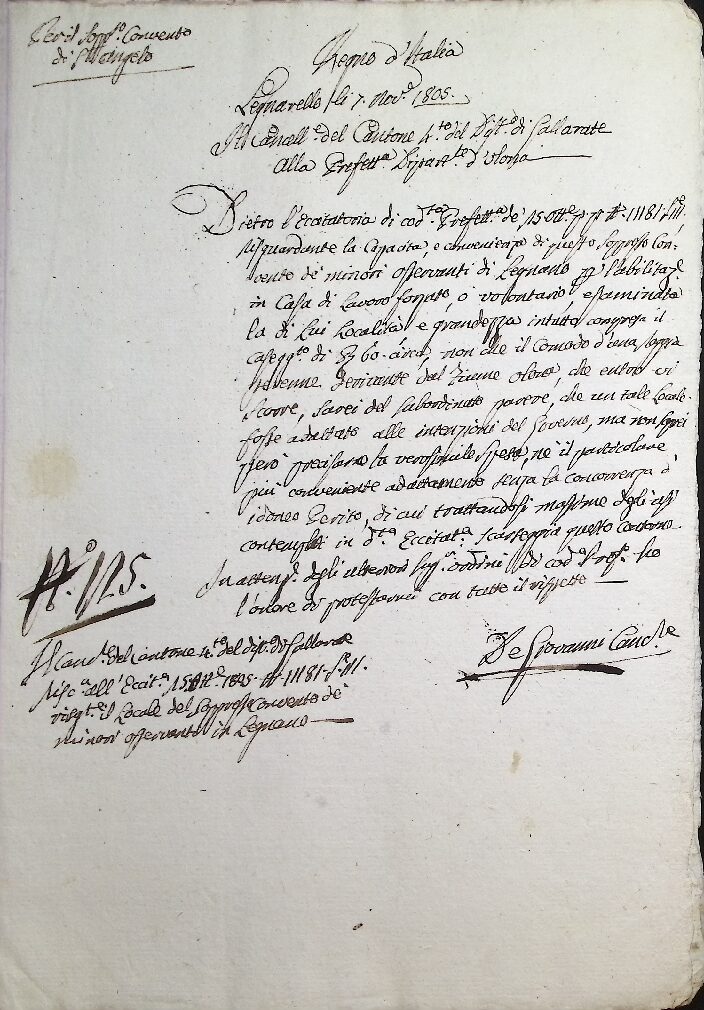 Per il Sopp.º Convento
di S. Angelo
Regno d'Italia
Legnarello li 7. Nov.e 1805.
Il Cancell.e del Cantone 4.to del Dist.º di Gallarate
alla Prefett.a Dipart.le d'Olona
Dietro l'Eccitatoria di cod.ta Prefett.a de' 15 Ott.e p.p. N. 11181. S. III.
risguardante la Capacità, e convenienza di questo soppresso Con-
vento de' minori osservanti di Legnano pp l'abilitaz.e
in Casa di Lavoro forzato, o volontario, esaminata
la di Lui Località e grandezza in tutto compresa il
caseg.to di 60 circa, non che il Comodo d'una
derivante dal Fiume Olona, che entro vi
scorre, sarei del subordinato parere, che un tale Locale
fosse adattato alle intenzioni del Governo, ma non saprei
però precisarne la verosimile spesa, nè il particolare
più conveniente adattamento senza la concorrenza d'
idoneo Perito, di cui trattandosi massime degli usi
contemplati in d.ta Eccitat.a scarseggia questo Cantone
In attenz.e degli ulteriori sup.ri ordini di cod.a Pref.a ho
l'onore di protestarmi con tutto il rispetto
De Giovanni Canc.re
N.º 1125.
Il Canc.e del Cantone 4.to del dist. di Gallarate
risc.a all' Eccit.a 15 Ott.e 1805 N. 11181. S. III.
risg.te il Locale del Soppresso Convento de'
minori osservanti in Legnano